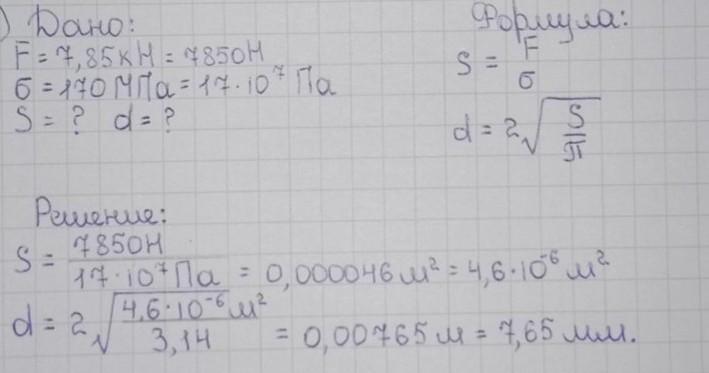 ) Дано:
F = 7,85кН = 7850Н
б = 170 МПа = 17·10⁷ Па
S = ? d = ?
Формула:
S = F/б
d = 2√(S/π)
Решение:
S = 7850Н/(17·10⁷ Па) = 0,000046 м² = 4,6·10⁻⁶ м²
d = 2√(4,6·10⁻⁶ м²/3,14) = 0,00765 м = 7,65 мм.